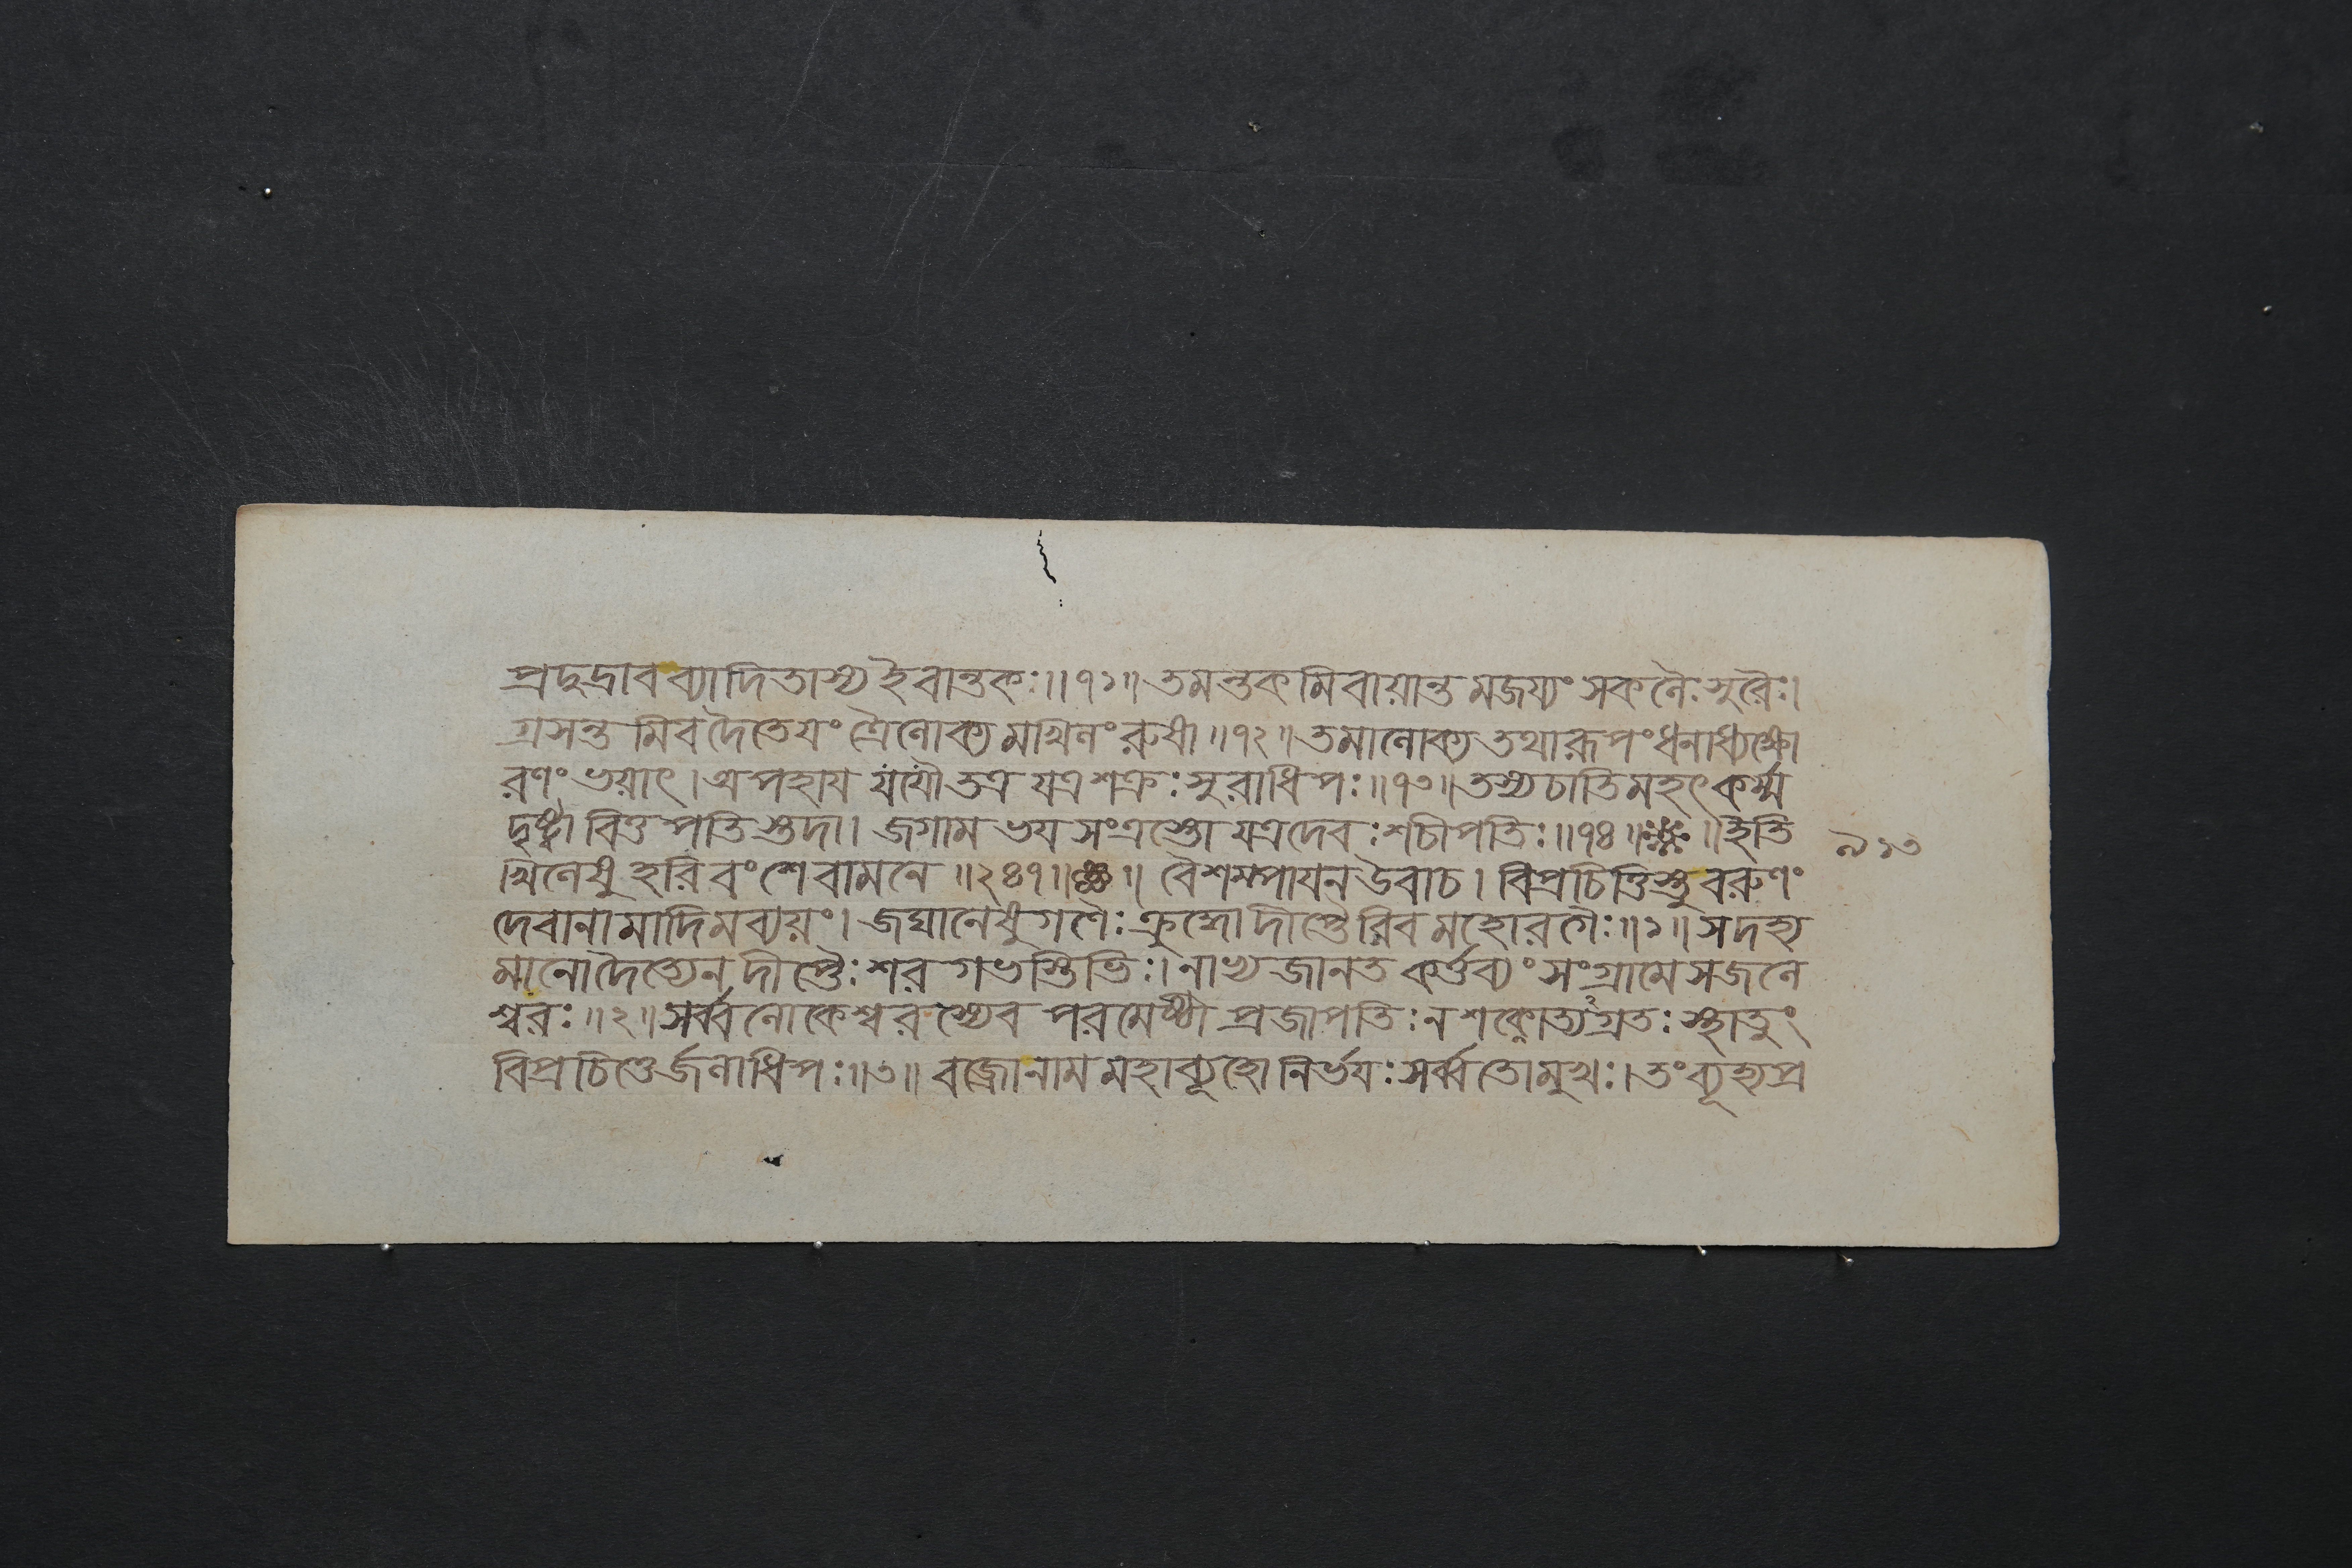 প্রদুদ্রাবব্যাদিতাস্যইবান্তকঃ॥৭১॥তমন্তকমিবায়ান্তমজয্যংসকলৈঃসুরৈঃ।
গ্রসন্তমিবদৈতেয়ংত্রৈলোক্যমাখিলংরুষা॥৭২॥তমালোক্যতথারূপংধনাধ্যক্ষো
রণংভয়াৎ।অপহায়যযৌতত্রযত্রশক্রঃসুরাধিপঃ॥৭৩॥তস্যচাতিমহৎকর্ম্ম
দৃষ্ট্বাবিত্তপতিস্তদা।জগামভয়সংত্রস্তোযত্রদেবঃশচীপতিঃ॥৭৪॥ ॥ইতি
খিলেষুহরিবংশেবামনে॥২৪৭॥ ॥বৈশম্পায়নউবাচ।বিপ্রচিত্তিস্তুবরুণং
দেবানামাদিমব্যয়ং।জঘানেষুগণৈঃক্রুদ্ধোদীপ্তৈরিবমহোরগৈঃ॥১॥সদহ্য
মানোদৈত্যেনদীপ্তৈঃশরগভস্তিভিঃ।নাভ্যজানতকর্ত্তব্যংসংগ্রামেসজলে
শ্বরঃ॥২॥সর্ব্বলোকেশ্বরস্যেবপরমেষ্ঠীপ্রজাপতিঃনশক্নোত্যগ্রতঃস্থাতুং
বিপ্রচিত্তের্জলাধিপঃ॥৩॥বজ্রোনামমহাব্যূহোনির্ভয়ঃসর্ব্বতোমুখঃ।তংব্যূহ্যপ্র
৯১৩